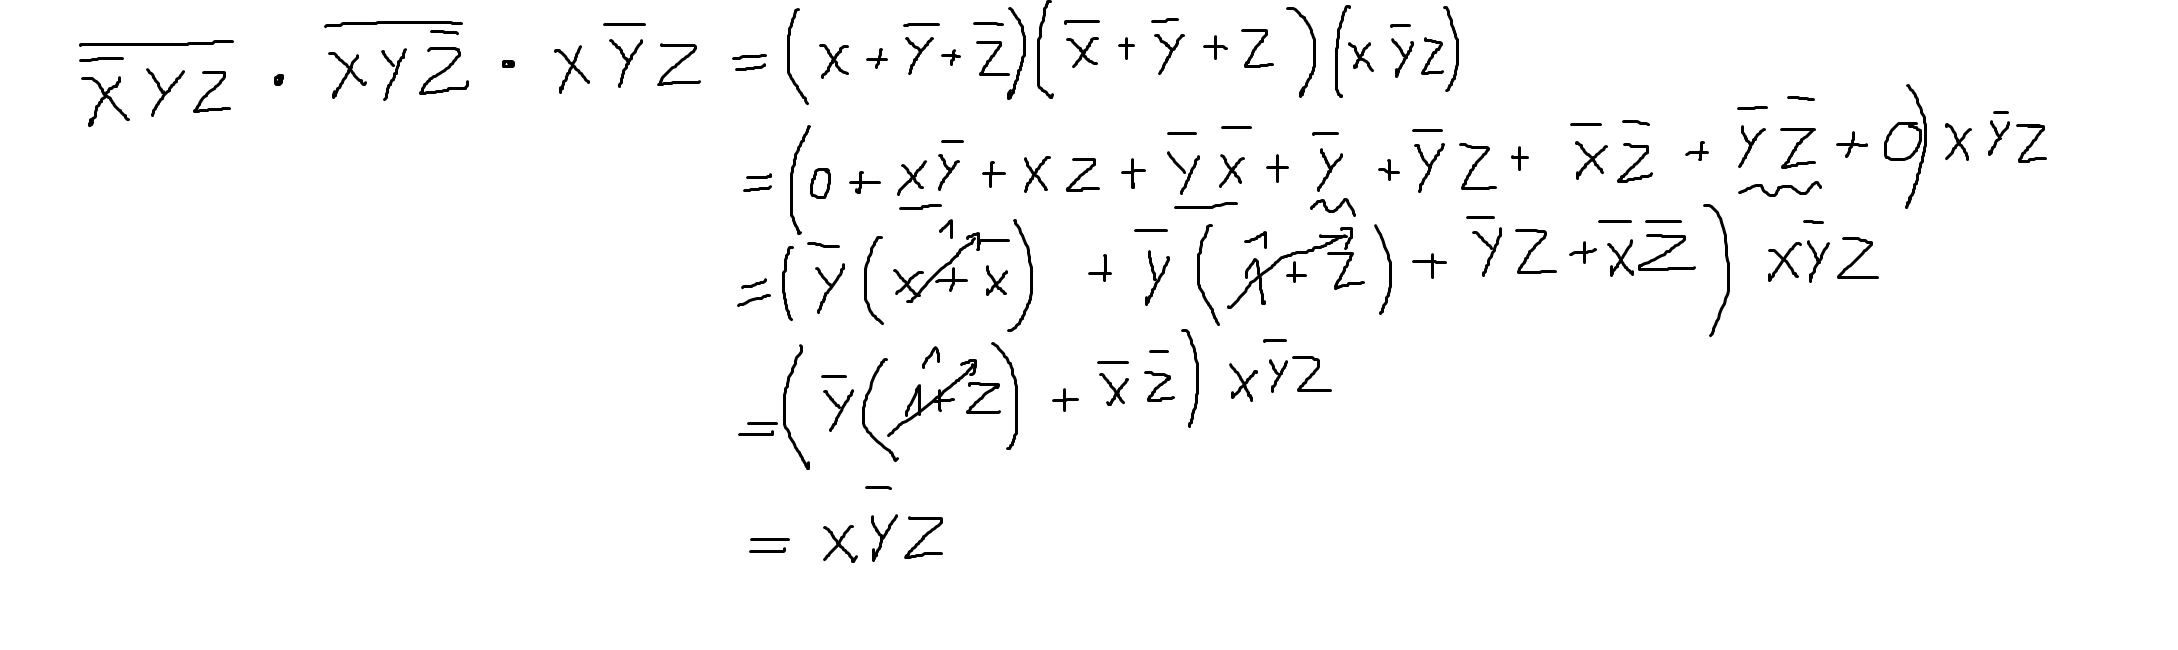 $\overline{\overline{X}YZ} \cdot \overline{XY\overline{Z}} \cdot X\overline{Y}Z = (X + \overline{Y} + \overline{Z})(\overline{X} + \overline{Y} + Z)(X\overline{Y}Z)$
$= (0 + X\overline{Y} + XZ + \overline{Y}\,\overline{X} + \overline{Y} + \overline{Y}Z + \overline{X}\,\overline{Z} + \overline{Y}\,\overline{Z} + 0) X\overline{Y}Z$
$= (\overline{Y}(X + \overline{X})^{1} + \overline{Y}(1 + \overline{Z})^{1} + \overline{Y}Z + \overline{X}\,\overline{Z}) X\overline{Y}Z$
$= (\overline{Y}(1 + Z)^{1} + \overline{X}\,\overline{Z}) X\overline{Y}Z$
$= X\overline{Y}Z$